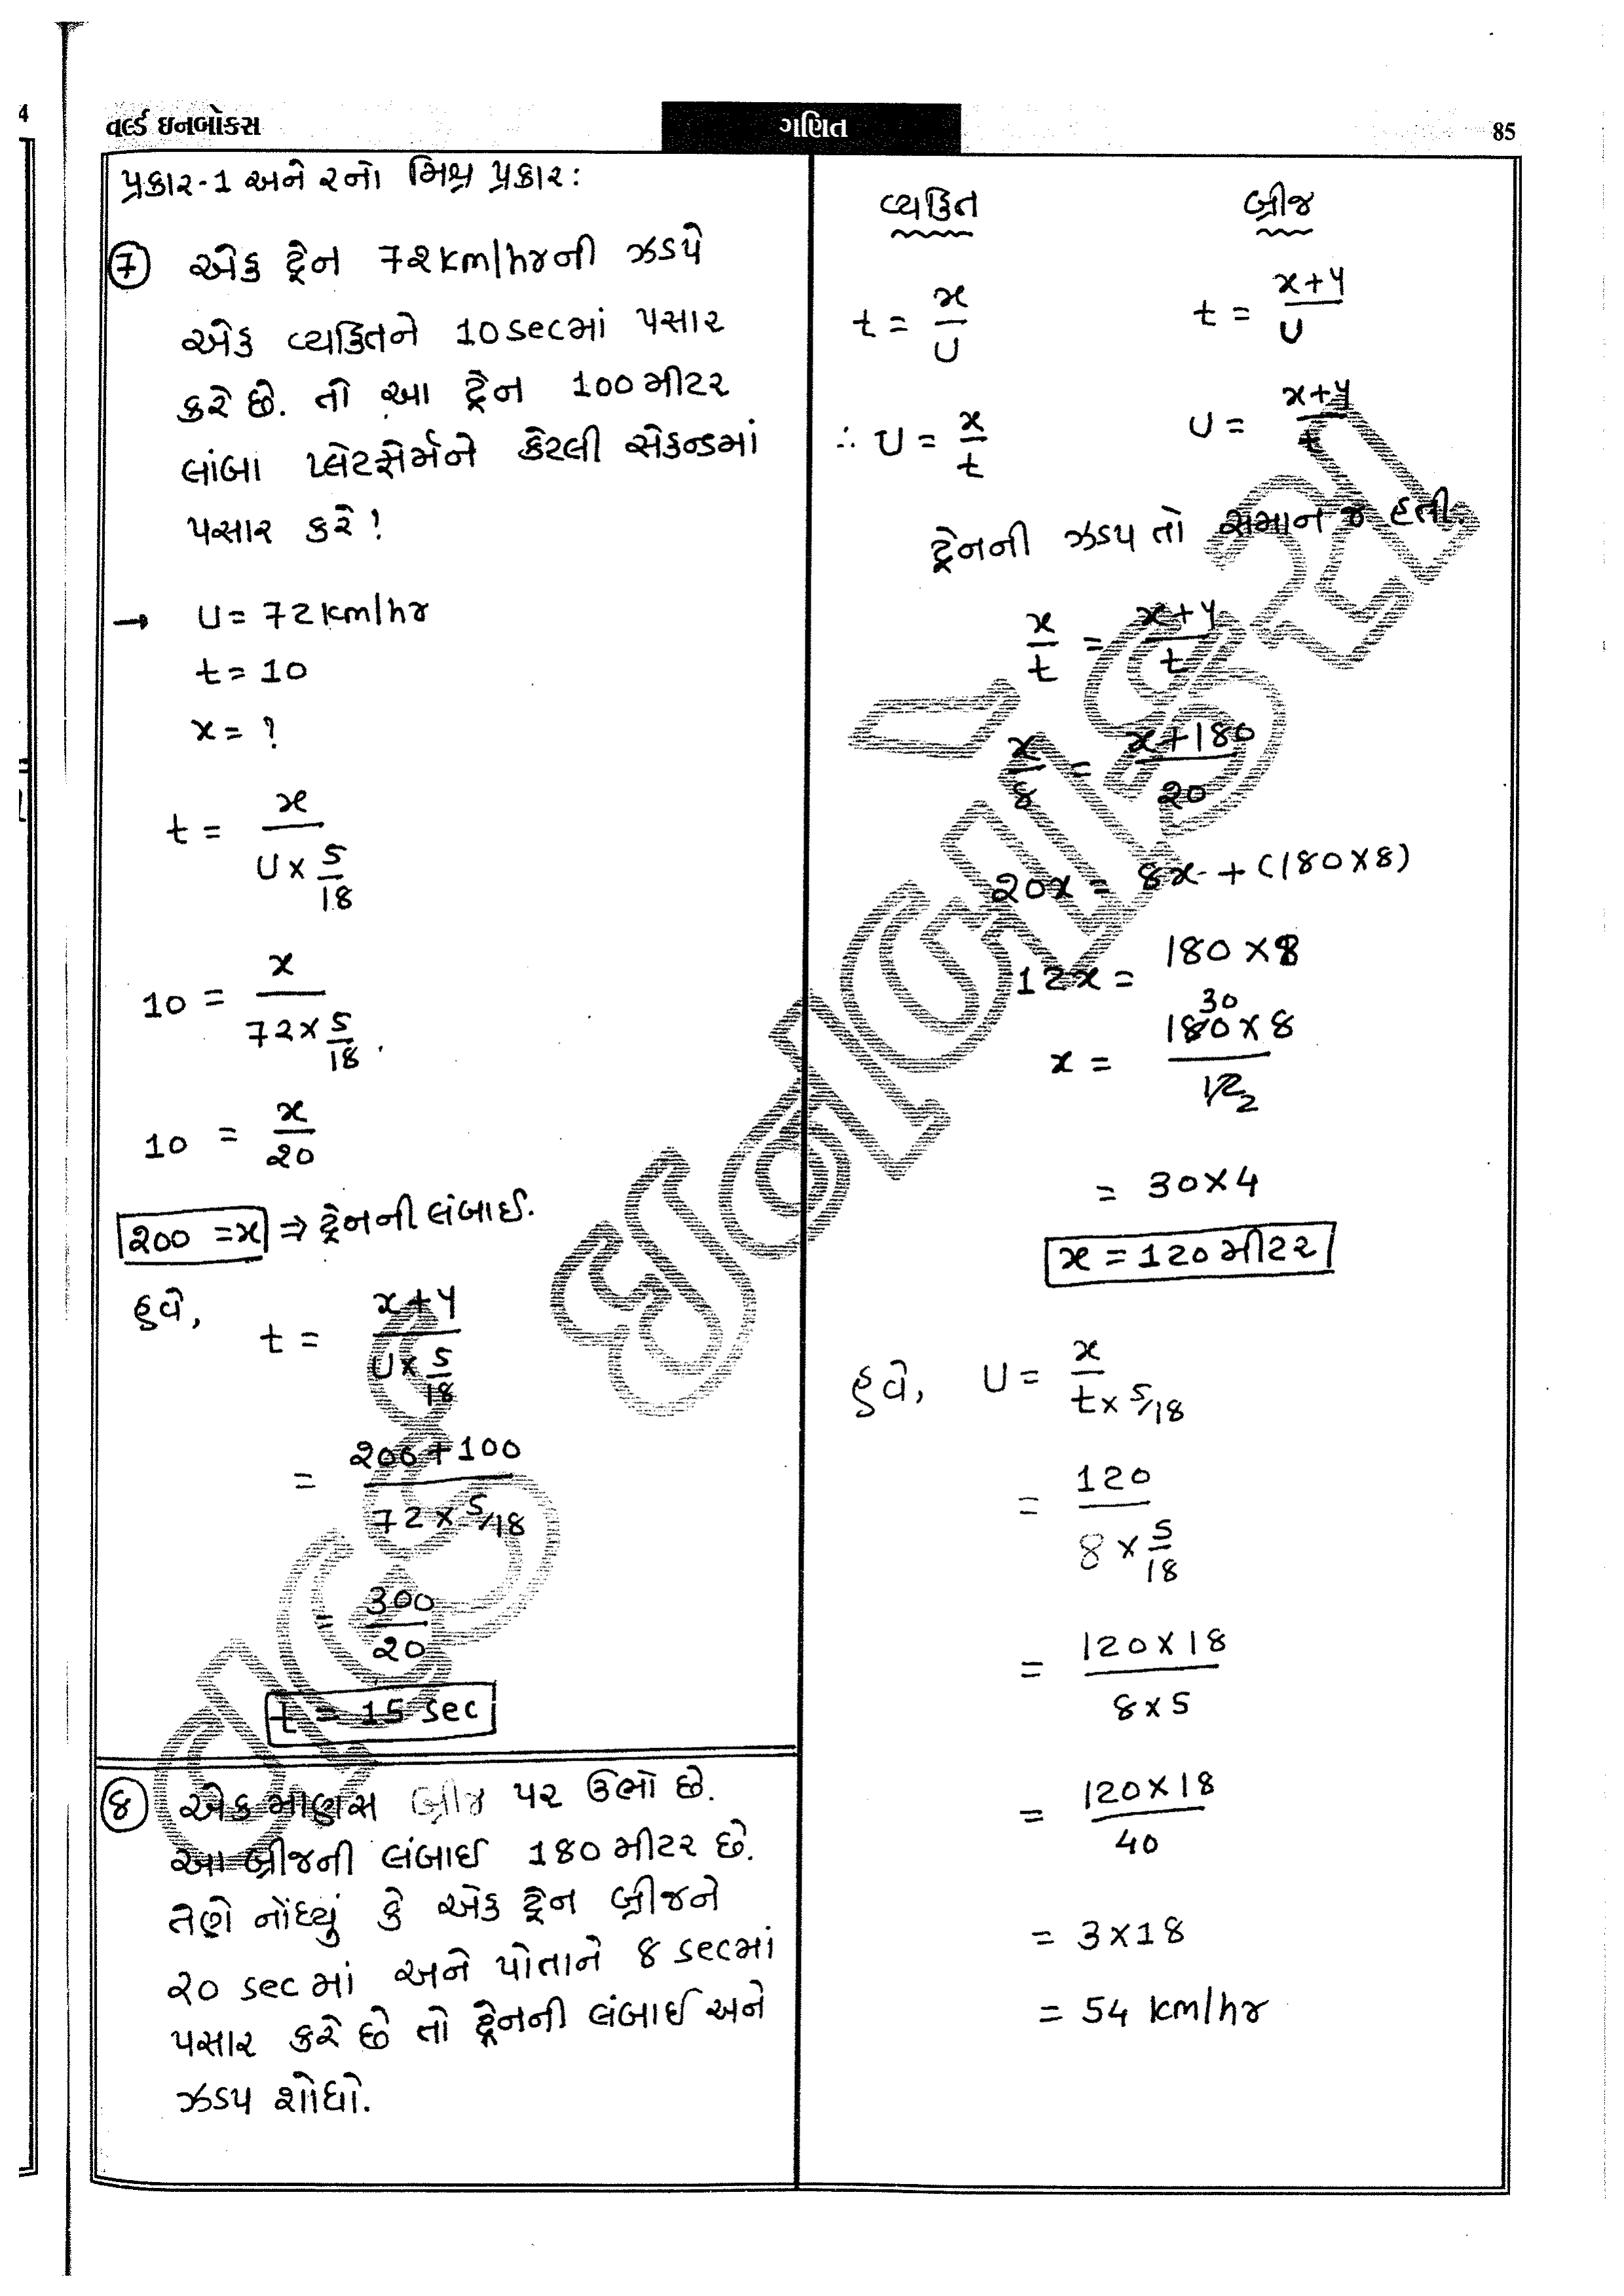 4
વર્લ્ડ ઇનબોક્સ
ગણિત
85
પ્રકાર-1 અને ૨નો મિશ્ર પ્રકાર:
7 એક ટ્રેન 7૨km/hrની ઝડપે
એક વ્યકિતને 10secમાં પસાર
કરે છે. તો આ ટ્રેન 100મીટર
લાંબા પ્લેટફોર્મને કેટલી સેકન્ડમાં
પસાર કરે?
→ U = 72km/hr
t = 10
x = ?
t = x / U × 5/18
10 = x / 7૨ × 5/18
10 = x / ૨0
૨00 = x ⇒ ટ્રેનની લંબાઈ.
હવે, t = x+y / U × 5/18
= ૨00+100 / 72 × 5/18
= 300 / ૨0
t = 15 sec
8 એક માણસ બ્રીજ પર ઉભો છે.
આ બ્રીજની લંબાઈ 180 મીટર છે.
તેણે નોંધ્યું કે એક ટ્રેન બ્રીજને
૨0 sec માં અને પોતાને 8 secમાં
પસાર કરે છે તો ટ્રેનની લંબાઈ અને
ઝડપ શોધો.
વ્યકિત બ્રીજ
t = x / U t = x+y / U
∴ U = x / t U = x+y / t
ટ્રેનની ઝડપ તો સમાન જ હતી.
x / t = x+y / t
x / 8 = x+180 / ૨0
૨0x = 8x + (180×8)
12x = 180×8
x = 180×8 / 12 30 2
= 30×4
x = 120 મીટર
હવે, U = x / t × 5/18
= 120 / 8 × 5/18
= 120×18 / 8×5
= 120×18 / 40
= 3×18
= 54 km/hr